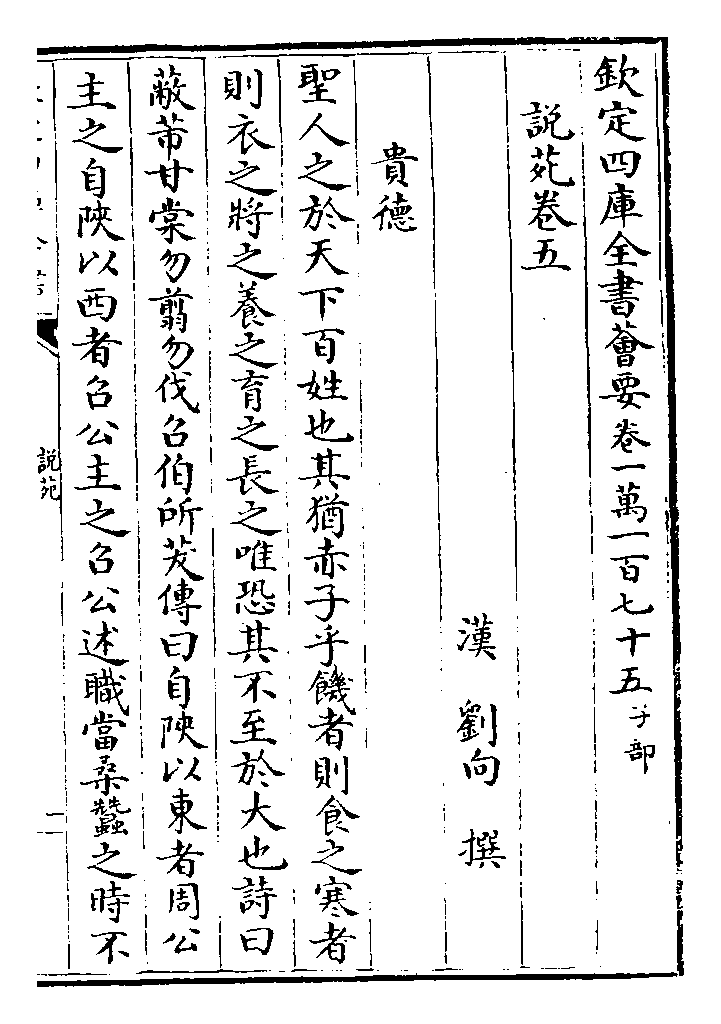 欽定四庫全書薈要卷一萬一百七十五子部
說苑卷五
漢 劉向 撰
貴德
聖人之於天下百姓也其猶赤子乎饑者則食之寒者
則衣之將之養之育之長之唯恐其不至於大也詩曰
蔽芾甘棠勿翦勿伐召伯所茇傳曰自陝以東者周公
主之自陝以西者召公主之召公述職當桑蠶之時不
說苑
一